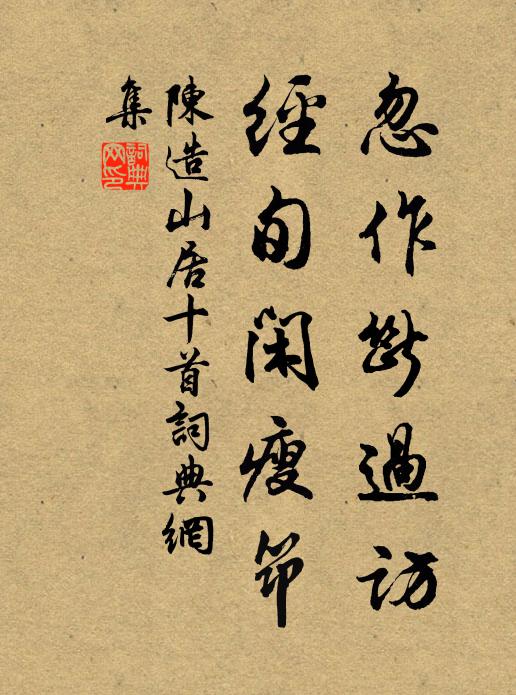 忽作彆過訪
經旬閑瘦笻
陳造山居十首詞典網
集
詞典網印